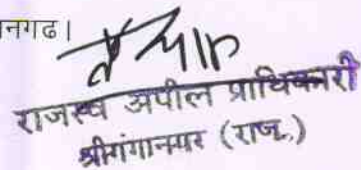 नगढ।
राजस्व अपील प्राधिकारी
श्रीगंगानगर (राज.)